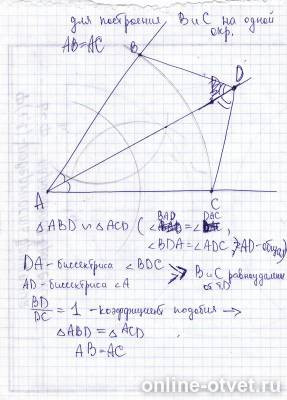 для построения B и C на одной
AB=AC окр.
B
D
A
C
△ABD ∾ △ACD ( ∠BAD = ∠DAC,
∠BDA = ∠ADC, AD - общая)
DA - биссектриса ∠BDC
AD - биссектриса ∠A
⇒ B и C равноудалены
от
BD/DC = 1 - коэффициент подобия →
△ABD = △ACD
AB = AC
online-otvet.ru